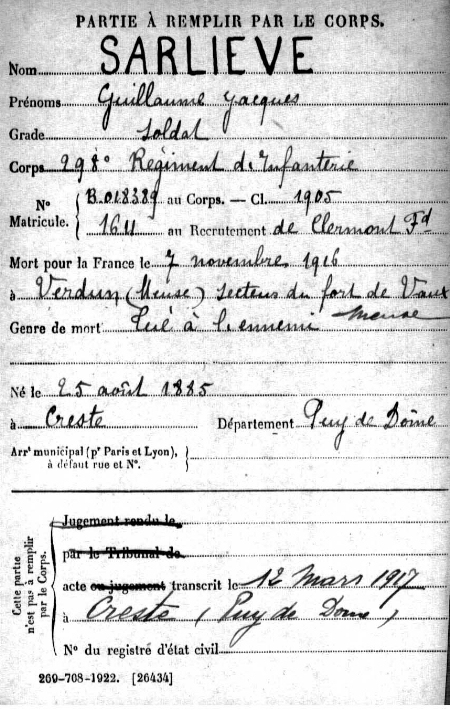 PARTIE À REMPLIR PAR LE CORPS.
Nom SARLIEVE
Prénoms Guillaume Jacques
Grade Soldat
Corps 298e Régiment d'Infanterie
N° Matricule. { B.018389 au Corps. — Cl. 1905
1611 au Recrutement de Clermont Fd
Mort pour la France le 7 novembre 1916
à Verdun (Meuse) secteur du fort de Vaux
Meuse
Genre de mort Tué à l'ennemi
Né le 25 août 1885
à Creste Département Puy de Dôme
Arrt municipal (pr Paris et Lyon), à défaut rue et N°. }
Cette partie n'est pas à remplir par le Corps.
Jugement rendu le
par le Tribunal de
acte ou jugement transcrit le 12 Mars 1917
à Creste (Puy de Dome)
N° du registre d'état civil
269-708-1922. [26434]